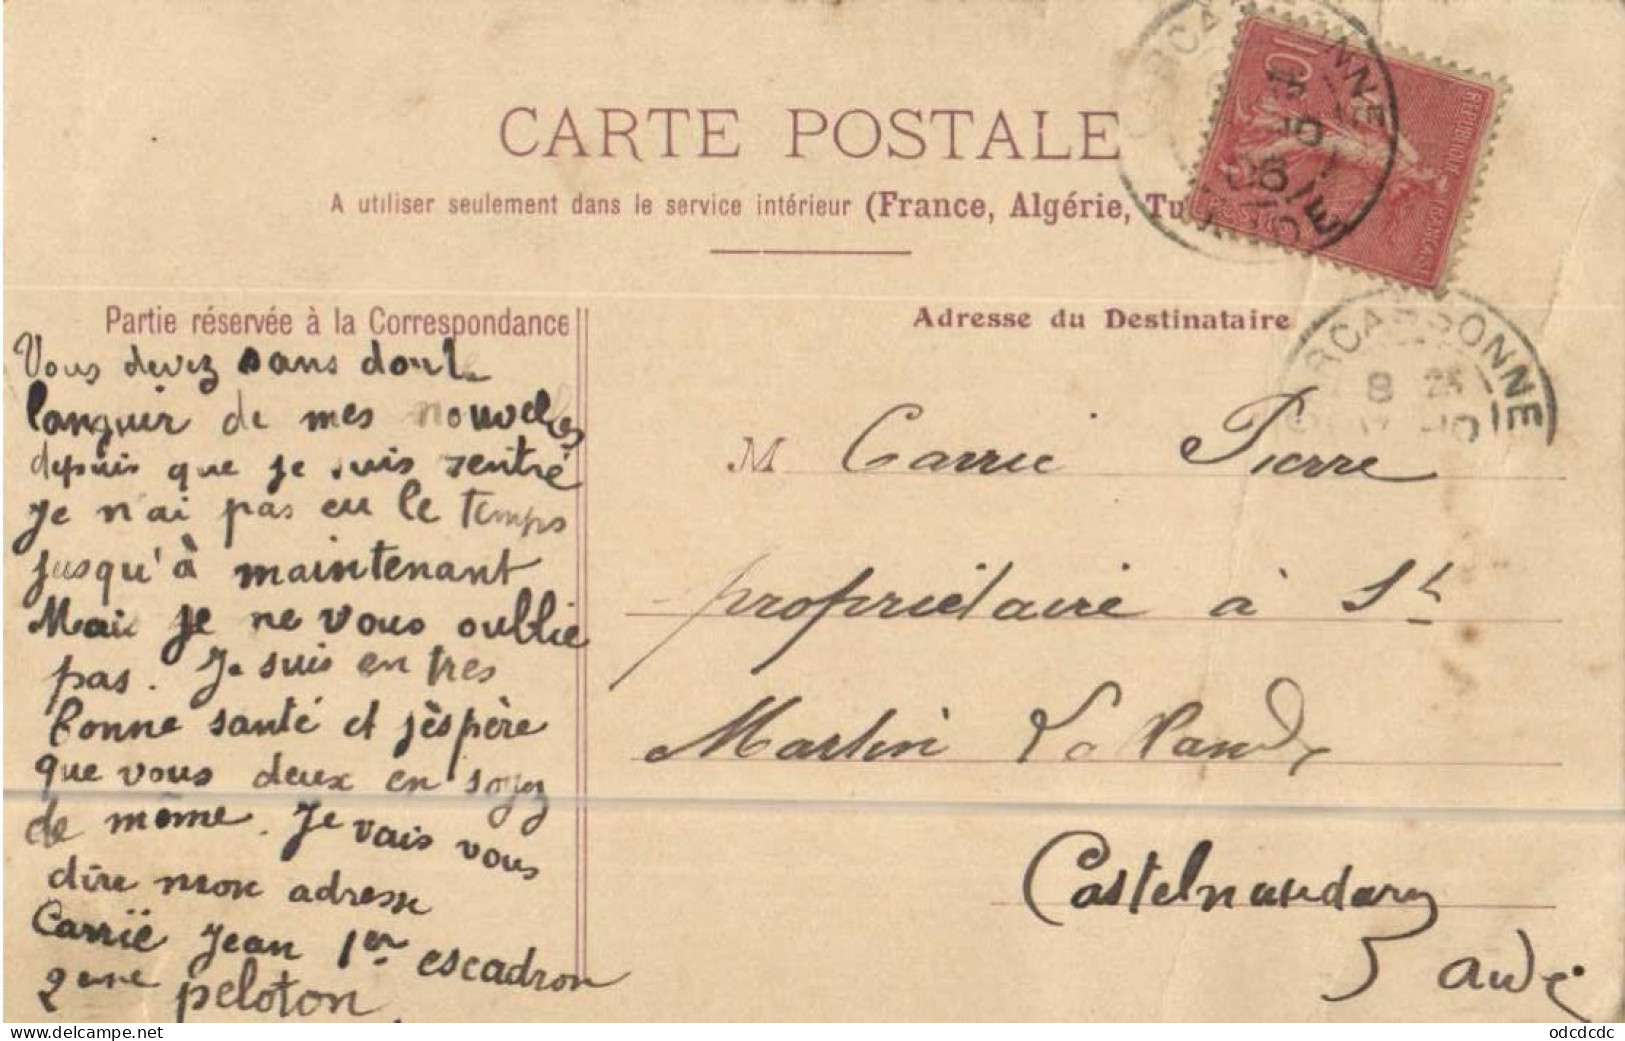 CARTE POSTALE
A utiliser seulement dans le service intérieur (France, Algérie, Tu
Partie réservée à la Correspondance
Vous devez sans dout
languir de mes nouvelles
depuis que je suis rentré
je n'ai pas eu le temps
jusqu'à maintenant
Mais je ne vous oublie
pas. Je suis en tres
bonne santé et j'èspère
que vous deux en soyez
de même. Je vais vous
dire mon adresse
Carrïé Jean 1er escadron
2eme peloton
Adresse du Destinataire
M Carrie Pierre
propriétaire à St
Martin Lalande
Castelnaudary
aude
10
REPUBLIQUE FRANÇAISE
CARCASSONNE
AUDE
CARCASSONNE
8 25
delcampe.net
odcdcdc